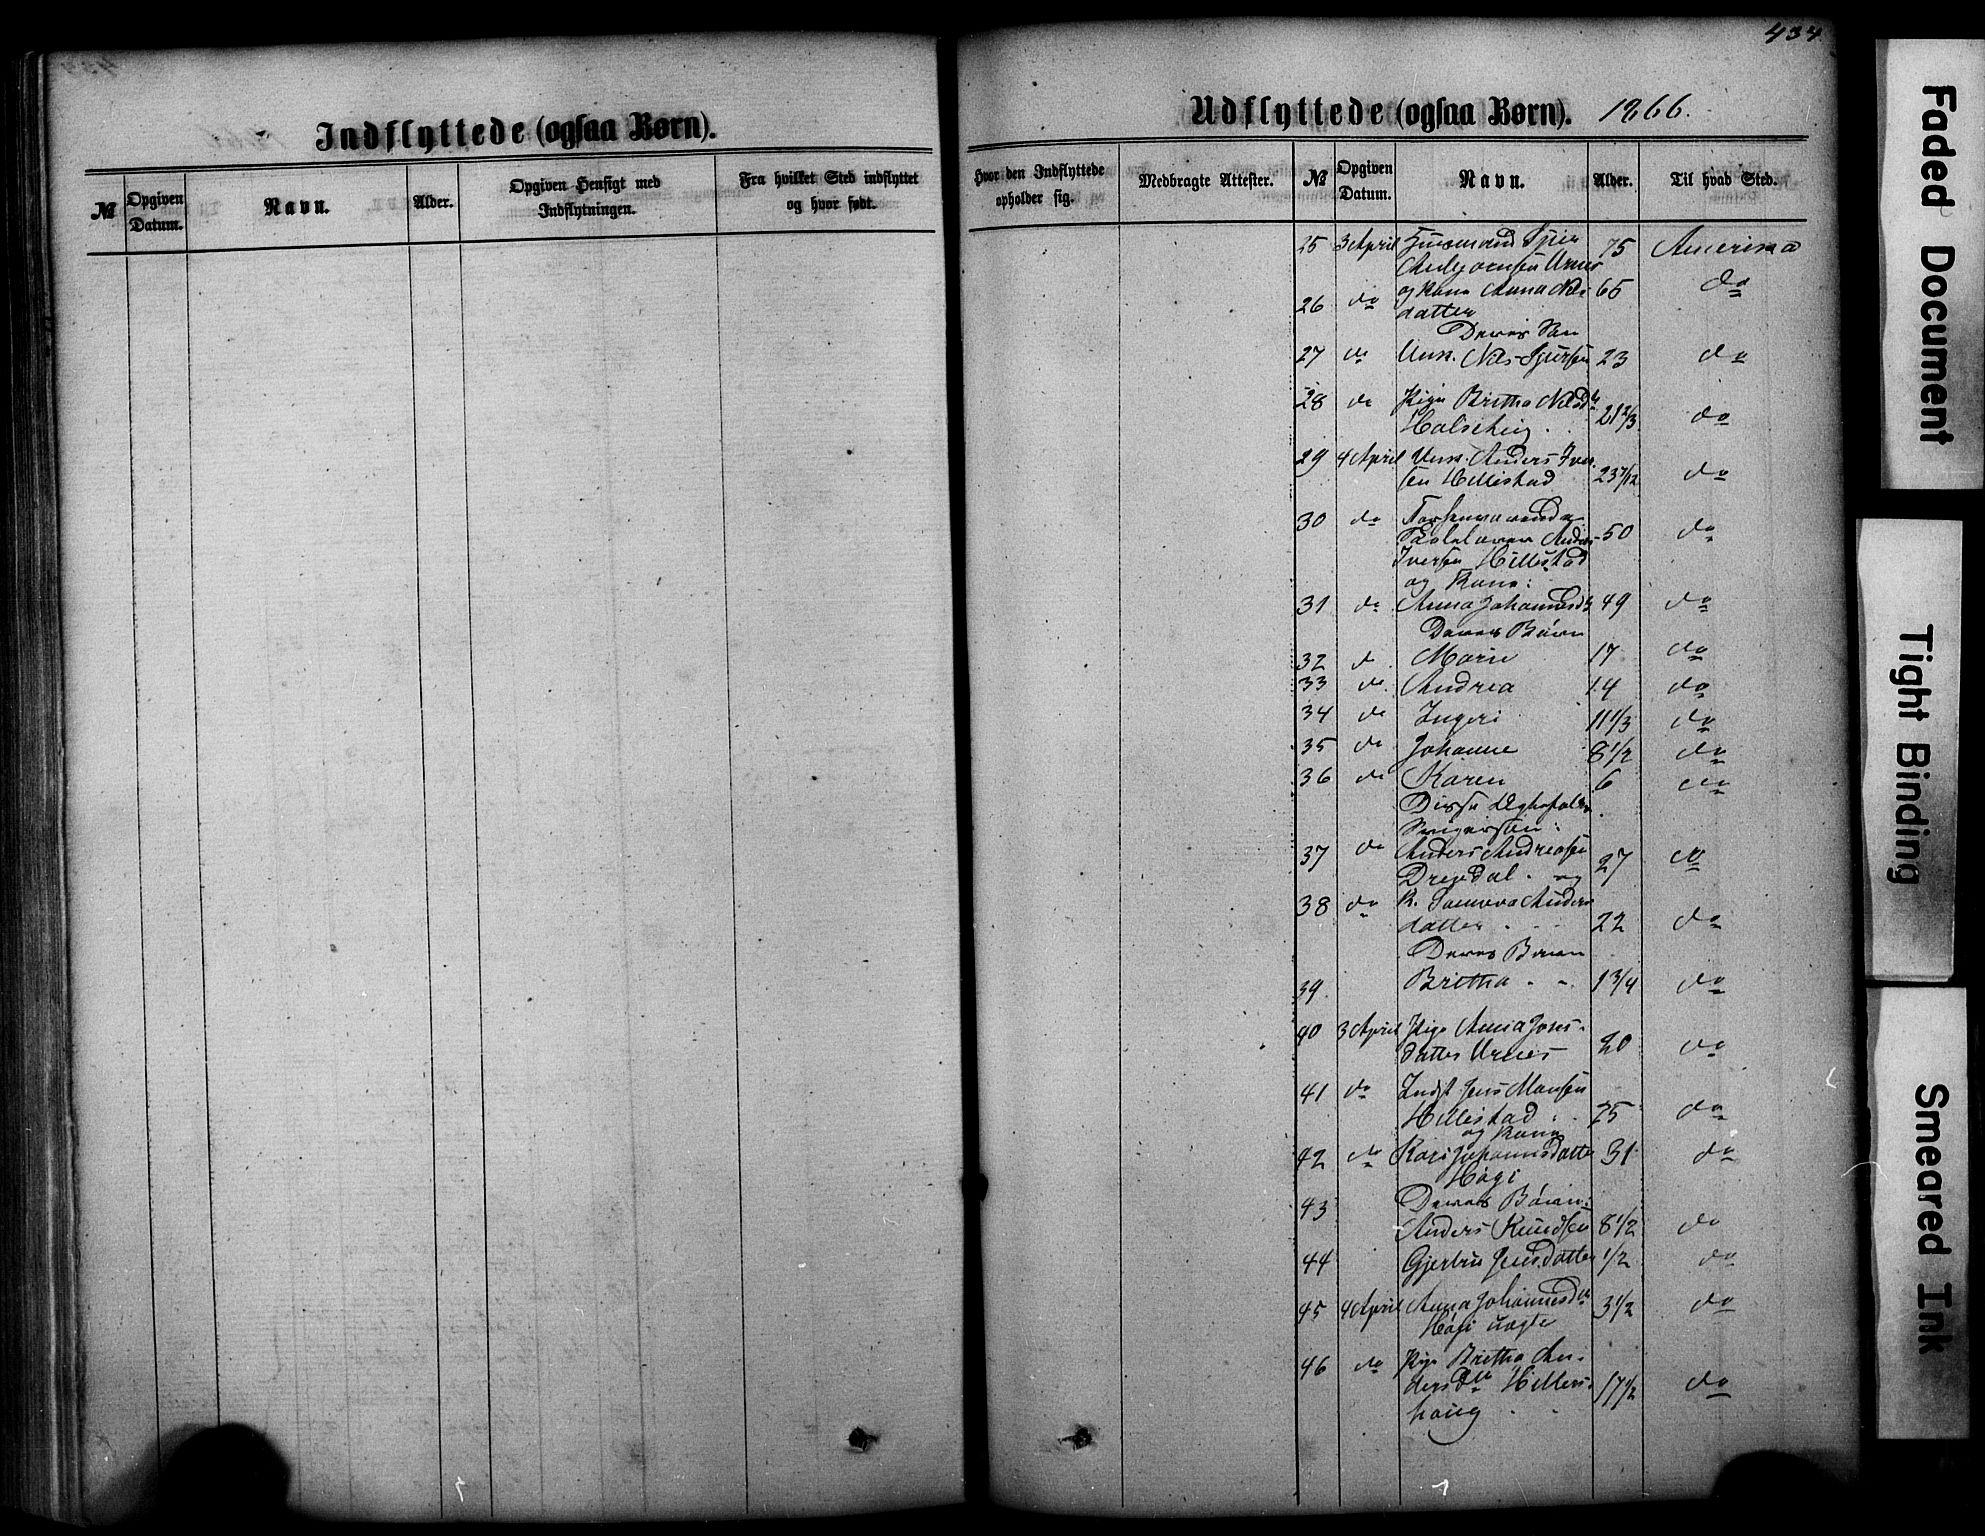 434
Indflyttede (ogsaa Børn).
№ Opgiven Datum. Navn. Alder. Opgiven Hensigt med Indflytningen. Fra hvilket Sted indflyttet og hvor født.
Udflyttede (ogsaa Børn). 1866.
Hvor den Indflyttede opholder sig. Medbragte Attester. № Opgiven Datum. Navn. Alder. Til hvad Sted.
25 3 April Huusmand 75 America
Urnes
26 do og Kone Anna Nils 65 do
datter
Deres Søn
27 do Unk. Nils 23 do
28 do Pige Britha Nilsd 21 2/3 do
29 4 April Unk. Anders Iver- 23 7/12 do
sen Hillestad
30 do Forhenværende 50 do
Anders
Iversen Hillestad
og Kone:
31 do Anna Johannesd 49 do
Deres Børn
32 do Marie 17 do
33 do Andrea 14 do
34 do Ingeri 11 1/3 do
35 do Johanne 8 1/2 do
36 do Karen 6 do
Disse
37 do Anders Andreasen 27 do
og
38 do K. Anders 22 do
datter
Deres Børn
39 Britha 1 3/4 do
40 3 April Pige Anna Jens- 20 do
datter Urnes
41 do Indst Jens Monsen 25 do
Hillestad
og Kone
42 do Kari Johannesdatter 31 do
Høgi
43 Deres Børn:
Anders Knudsen 8 1/2 do
44 Gjertru Jensdatter 1/2 do
45 4 April Anna Johannesdtr 3 1/2 do
Høgi uægte
46 do Pige Britha An- 17 1/2 do
ders Dtr Hillers-
haug
Faded Document
Tight Binding
Smeared Ink